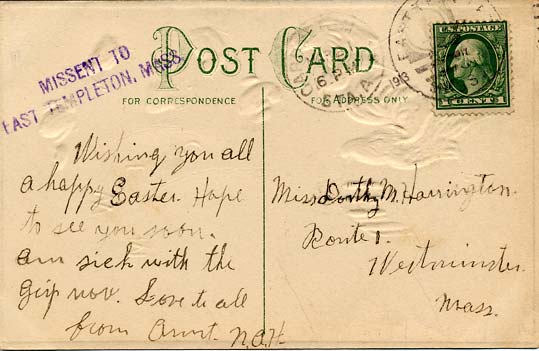 MISSENT TO
EAST TEMPLETON, MASS
POST CARD
FOR CORRESPONDENCE
FOR ADDRESS ONLY
U.S. POSTAGE
Wishing you all
a happy Easter. Hope
to see you soon.
am sick with the
grip now. Love to all
from Aunt. N.A.H.
Miss Dorothy M. Harrington.
Route 1.
Westminster.
Mass.